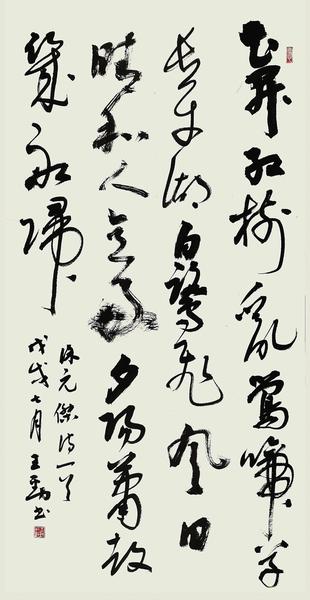 花開紅樹亂鶯啼草
长平湖白鷺飛風日
晴和人意好夕陽蕭鼓
幾船歸
徐元傑詩一首
戊戌七月王書